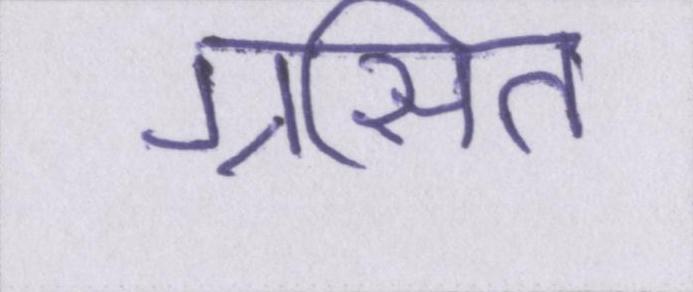 ग्रसित